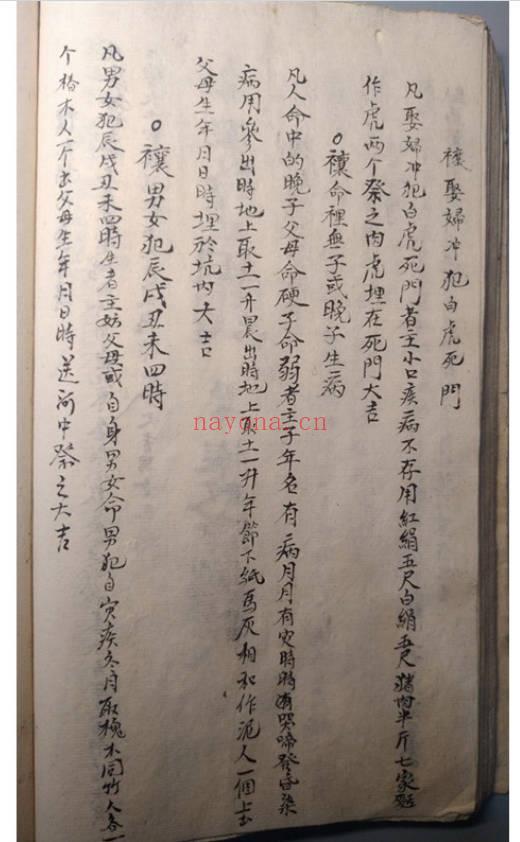 禳娶婦冲犯白虎死門
凡娶婦冲犯白虎死門者主小口疾病不存用紅絹五尺白絹五尺猪肉半斤七家麵
作虎两个祭之肉虎埋在死門大吉
禳命裡無子或晚子生病
凡人命中的晚子父母命硬子命弱者主子年多有病月月有灾時時有哭啼登昏染
病用參出時地上取土一升晨出時地上取土一升年節下紙馬灰相和作泥人一個上書
父母生年月日時埋於坑内大吉
禳男女犯辰戌丑未四時
凡男女犯辰戌丑未四時生者主妨父母或自身男女命男犯自灾疾冬月取槐木同竹人各一
个椿木人一个書父母生年月日時送河中祭之大吉
nayona.cn